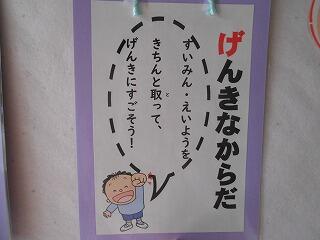 げんきなからだ
すいみん・えいようを
きちんと取って、
げんきにすごそう！